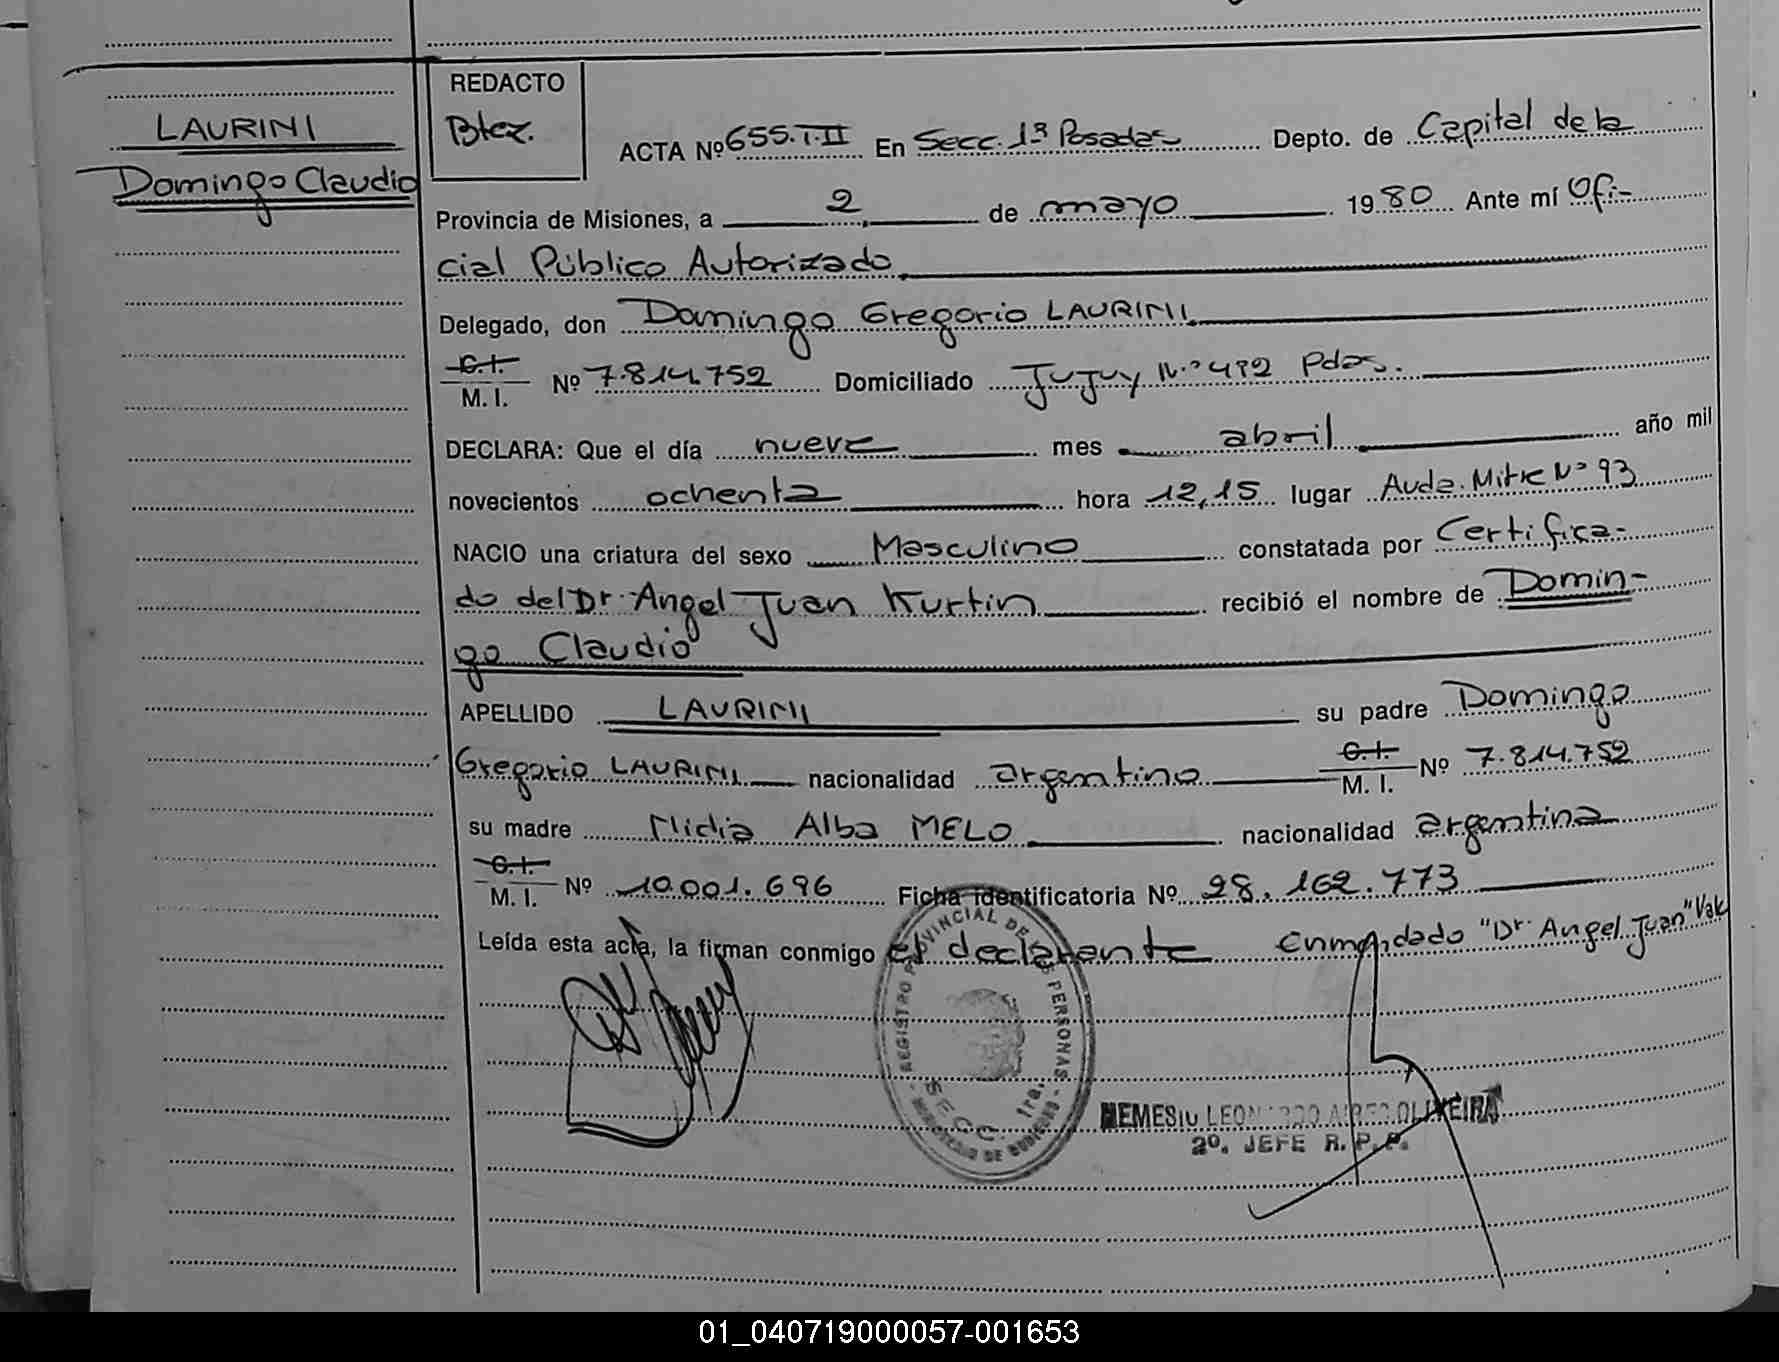 LAURINI
Domingo Claudio
REDACTO
Btez.
ACTA Nº 655.T.II En Secc. 1ª Posadas Depto. de Capital de la
Provincia de Misiones, a 2 de mayo 1980 Ante mí Ofi-
cial Público Autorizado
Delegado, don Domingo Gregorio LAURINI
C.I.
M. I. Nº 7.814.752 Domiciliado Jujuy N.º 492 Pdas.
DECLARA: Que el día nueve mes abril año mil
novecientos ochenta hora 12,15 lugar Avda. Mitre Nº 93
NACIO una criatura del sexo Masculino constatada por Certifica-
do del Dr. Angel Juan Kurtin recibió el nombre de Domin-
go Claudio
APELLIDO LAURINI su padre Domingo
Gregorio LAURINI nacionalidad argentino C.I. M. I. Nº 7.814.752
su madre Nidia Alba MELO nacionalidad argentina
C.I.
M. I. Nº 10.001.696 Ficha Identificatoria Nº 28.162.773
Leída esta acta, la firman conmigo el declarante Enmendado "Dr. Angel Juan" Vale
REGISTRO PROVINCIAL DE LAS PERSONAS
SECC. 1ra.
MINISTERIO DE GOBIERNO
NEMESIO LEONARDO AIRES OLIVEIRA
2º. JEFE R. P. P.
01_040719000057-001653